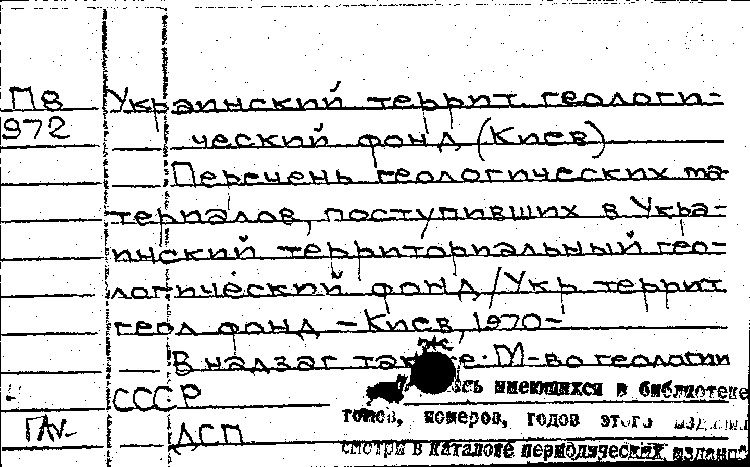 П8 Украинский террит. геологи-
972 ческий фонд (Киев)
Перечень геологических ма-
териалов, поступивших в Укра-
инский территориальный гео-
логический фонд / Укр. террит.
геол. фонд. - Киев, 1970-
В надзаг. также: М-во геологии
СССР
имеющихся в библиотеке
ДСП томов, номеров, годов этого
смотри в каталоге периодических изданий